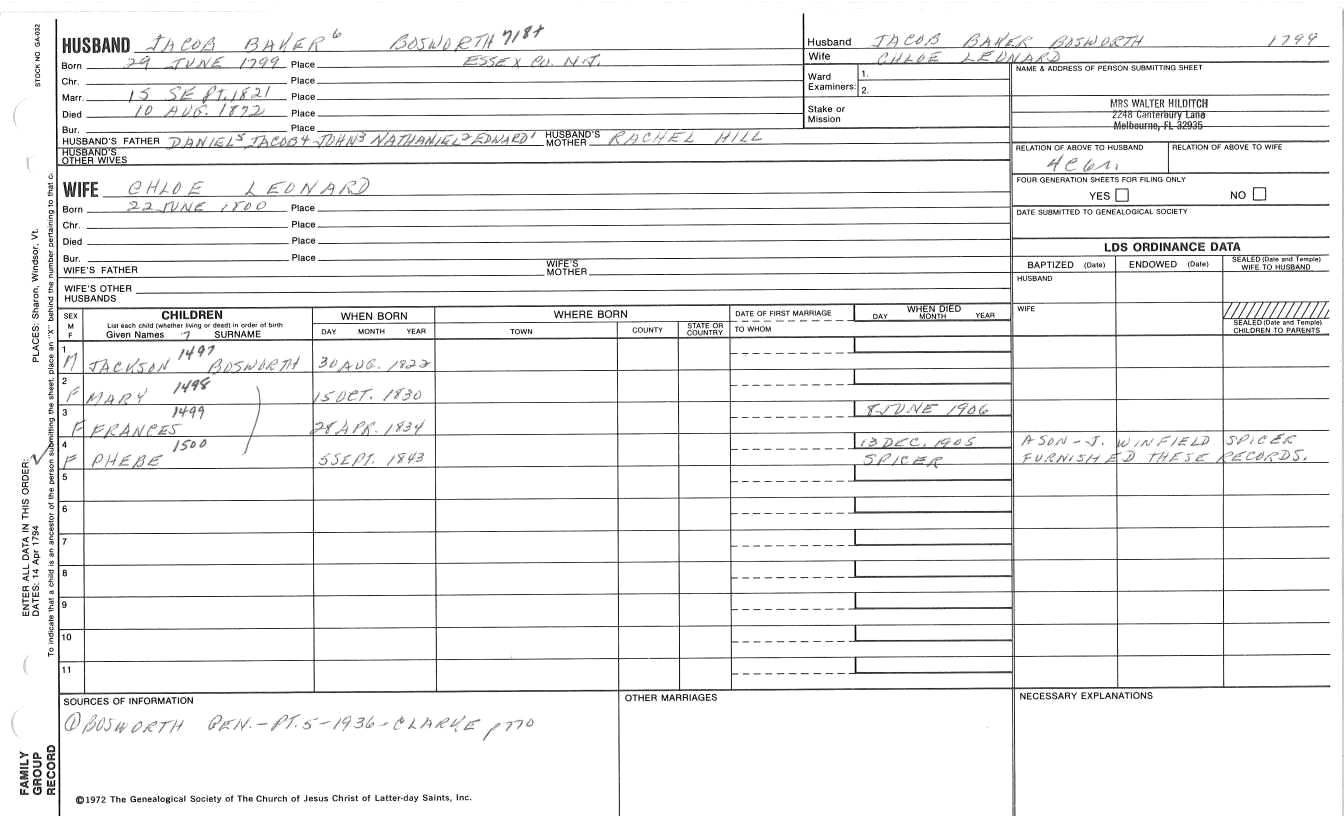 STOCK NO GA-032
HUSBAND JACOB BAKER⁶ BOSWORTH 718+
Born 29 JUNE 1799 Place ESSEX CO. N.J.
Chr. Place
Marr. 15 SEPT. 1821 Place
Died 10 AUG. 1872 Place
Bur. Place
HUSBAND'S FATHER DANIEL⁵ JACOB4 JOHN³ NATHANIEL² EDWARD¹ HUSBAND'S MOTHER RACHEL HILL
HUSBAND'S OTHER WIVES
Husband JACOB BAKER BOSWORTH 1799
Wife CHLOE LEONARD
Ward Examiners: 1.
2.
Stake or Mission
NAME & ADDRESS OF PERSON SUBMITTING SHEET
MRS WALTER HILDITCH
2248 Canterbury Lane
Melbourne, FL 32935
RELATION OF ABOVE TO HUSBAND RELATION OF ABOVE TO WIFE
4C6r.
FOUR GENERATION SHEETS FOR FILING ONLY
YES NO
DATE SUBMITTED TO GENEALOGICAL SOCIETY
WIFE CHLOE LEONARD
Born 22 JUNE 1800 Place
Chr. Place
Died Place
Bur. Place
WIFE'S FATHER WIFE'S MOTHER
WIFE'S OTHER HUSBANDS
LDS ORDINANCE DATA
BAPTIZED (Date) ENDOWED (Date) SEALED (Date and Temple) WIFE TO HUSBAND
HUSBAND
WIFE
SEALED (Date and Temple) CHILDREN TO PARENTS
SEX M F CHILDREN List each child (whether living or dead) in order of birth Given Names 7 SURNAME
WHEN BORN DAY MONTH YEAR
WHERE BORN TOWN COUNTY STATE OR COUNTRY
DATE OF FIRST MARRIAGE TO WHOM
WHEN DIED DAY MONTH YEAR
1 M JACKSON 1497 BOSWORTH 30 AUG. 1822
2 F MARY 1498 15 OCT. 1830
3 F FRANCES 1499 28 APR. 1834 8 JUNE 1906
4 F PHEBE 1500 5 SEPT. 1843 13 DEC. 1905 SPICER A SON - J. WINFIELD SPICER
FURNISHED THESE RECORDS.
5
6
7
8
9
10
11
SOURCES OF INFORMATION
① BOSWORTH GEN. - PT. 5 - 1936 - CLARKE
OTHER MARRIAGES
NECESSARY EXPLANATIONS
©1972 The Genealogical Society of The Church of Jesus Christ of Latter-day Saints, Inc.
PLACES: Sharon, Windsor, Vt.
ENTER ALL DATA IN THIS ORDER:
DATES: 14 Apr 1794
To indicate that a child is an ancestor of the person submitting the sheet, place an "X" behind the number pertaining to that c
FAMILY
GROUP
RECORD